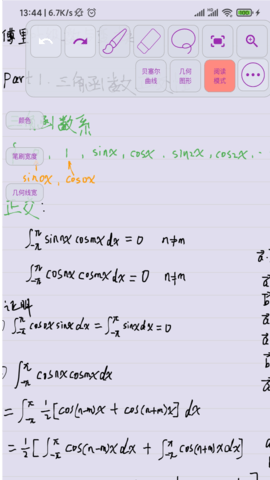 13:44 | 6.7K/s
贝塞尔曲线
几何图形
阅读模式
Part 1. 三角函数
颜色
函数系
笔刷宽度
1, sinx, cosx, sin2x, cos2x, ..
sin0x, cos0x
几何线宽
正交:
∫_{-π}^{π} sinnx cosmx dx = 0 n≠m
∫_{-π}^{π} cosnx cosmx dx = 0 n≠m
证明
∫_{-π}^{π} cos0x sinx dx = ∫_{-π}^{π} sinx dx = 0
∫_{-π}^{π} cosnx cosmx dx
= ∫_{-π}^{π} 1/2 [cos(n-m)x + cos(n+m)x] dx
= 1/2 [∫_{-π}^{π} cos(n-m)x dx + ∫_{-π}^{π} cos(n+m)x dx]